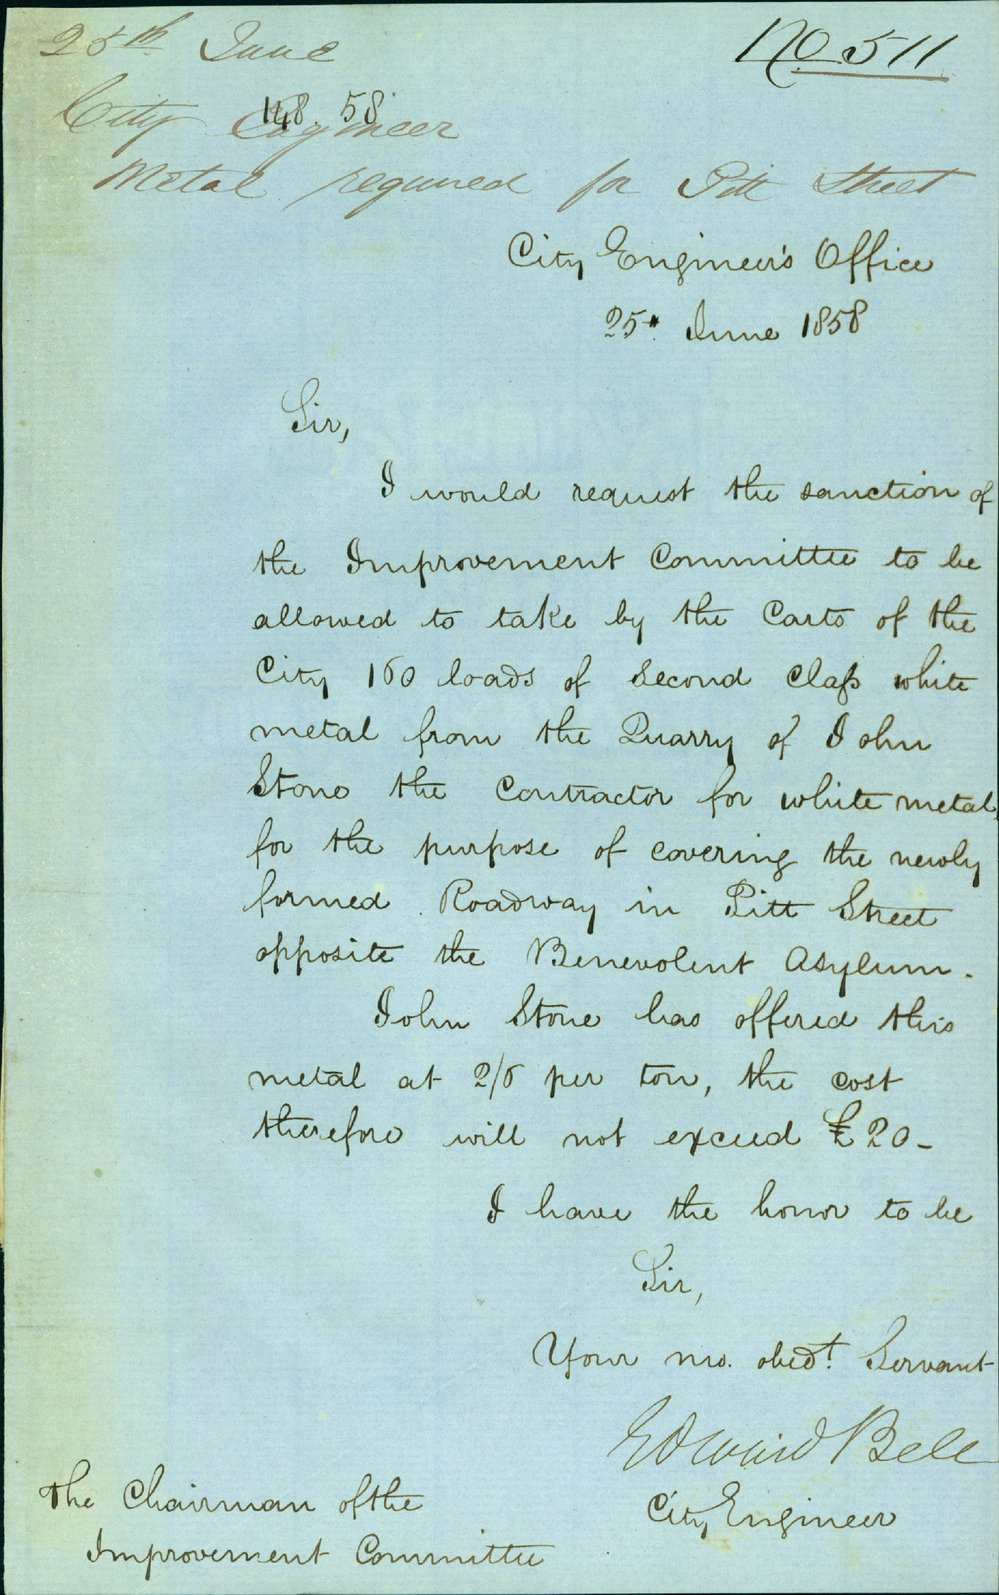 25th June
No 511
City Engineer
148. 58
Metal required for Pitt Street
City Engineer's Office
25th June 1858
Sir,
I would request the sanction of
the Improvement Committee to be
allowed to take by the Carts of the
City 160 loads of Second Claſs white
metal from the Quarry of John
Stone the Contractor for white metal,
for the purpose of covering the newly
formed Roadway in Pitt Street
opposite the Benevolent Asylum.
John Stone has offered this
metal at 2/6 per ton, the cost
therefore will not exceed £20-
I have the honor to be
Sir,
Your mo. obedt. Servant
Edward Bell
City Engineer
The Chairman of the
Improvement Committee